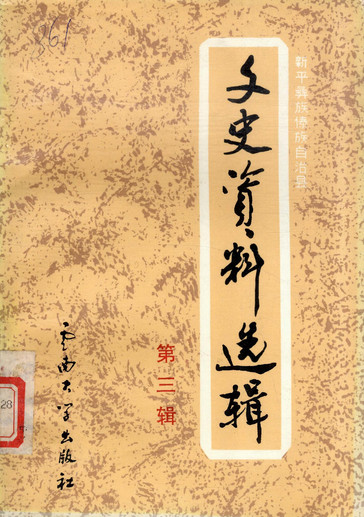 新平彝族傣族自治县
文史资料选辑
第三辑
云南大学出版社
361
28